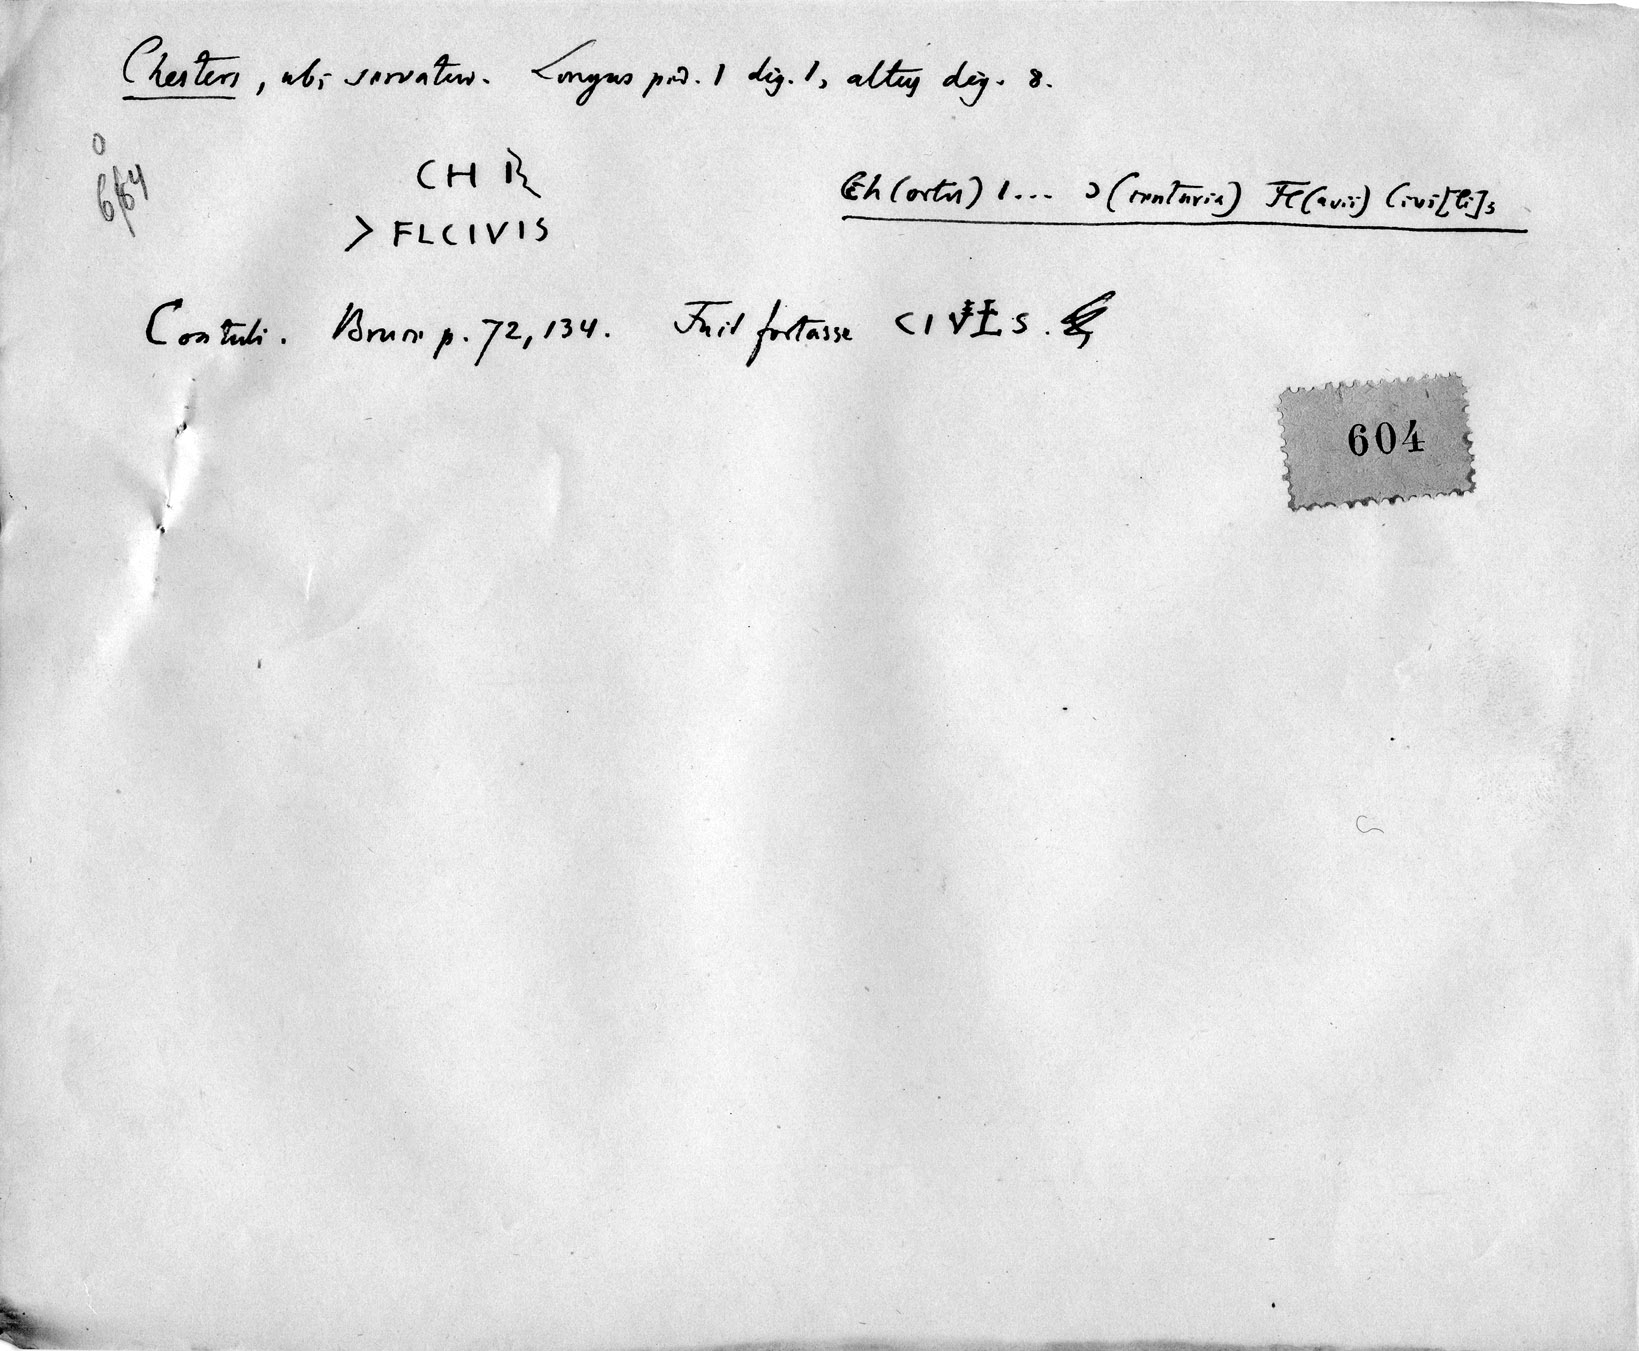 Chesters, ubi servatur. Longus ped. 1 dig. 1, altus dig. 8.
664
CH I
Ch(ortis) I... Ɔ(centuria) Fl(avii) Civi[li]s
> FLCIVIS
Contuli. Bruce p. 72, 134. Fuit fortasse CIVILS.
604